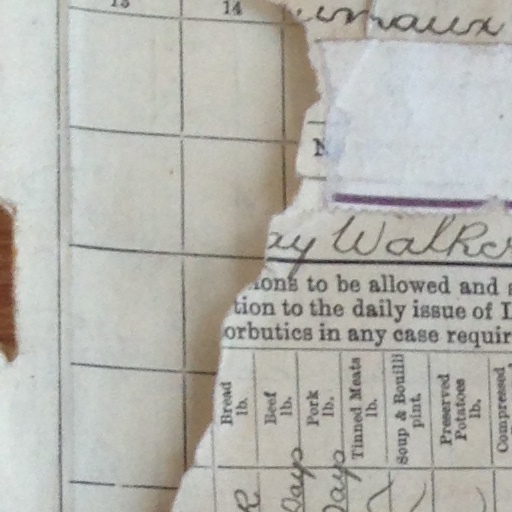 13 14
N
ay Walker
ions to be allowed and
tion to the daily issue of
orbutics in any case requir
Bread lb.
Beef lb.
Pork lb.
Tinned Meats lb.
Soup & Bouilli pint.
Preserved Potatoes lb.
Compressed
Days
Days